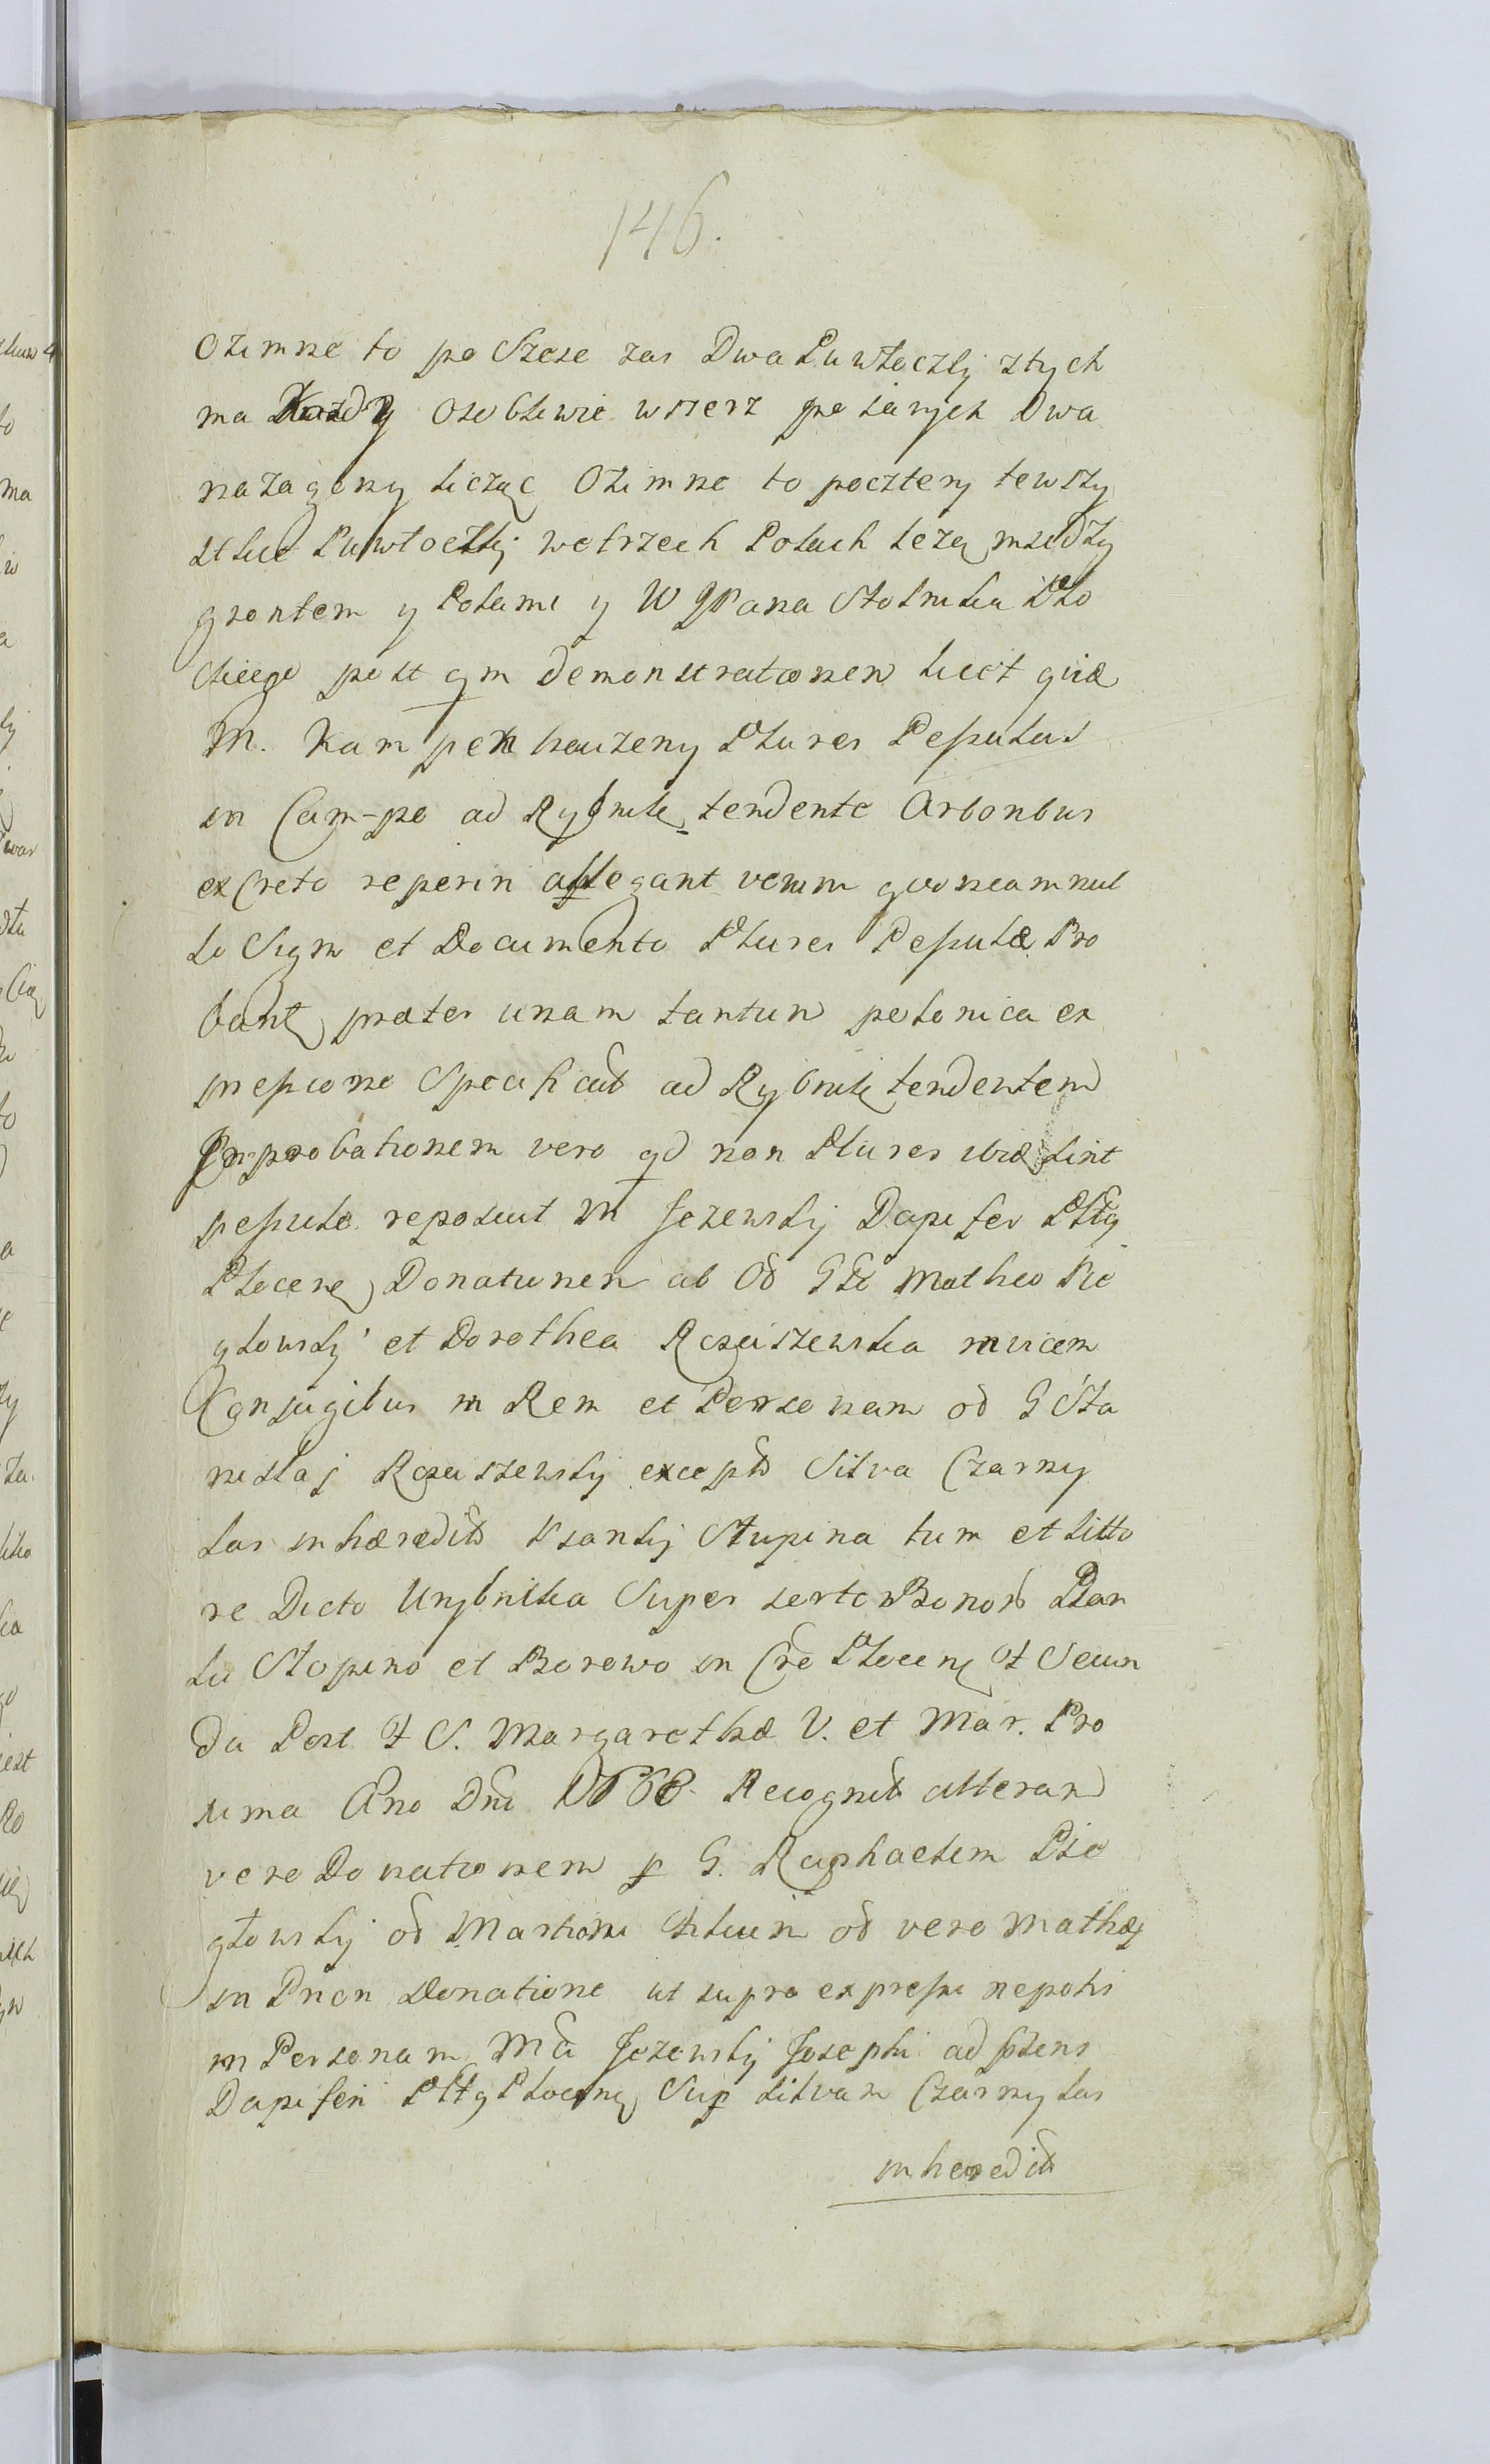 146.
Ozimne to po Szese zas Dwa Puwłoczki ztych
ma Kazdy Osobliwie wszerz po Jarych Dwa
na zagony licząc Ozimne to poczterj tewszy
stkie Puwłoczki wetrzech Polach lezą między
grontem y Polami y W JPana Stolnika Pło
ckiego post qm demonstrationem licet quid
M. Kam peh hauzeny Plures Pessulas
in Cam-po ad Rybnik tendente Arboribus
excreto reperiri allegant verum quoneam nul
lo Sign et Documento Plures Pessulæ Pro
bant præter unam tantum polonica ex
pressione Specificat ad Rybnik tendentem
In-probationem vero qd non Plures ibid sint
pessule reposuit M Jezewskj Dapifer Pltg
Plocens Donationem ab Od G Matheo Pie
głowskj et Dorothea Rczeiszewska invicem
Conjugibus in Rem et Personam od G Sta
nislaj Rczeiszewskj except Silva Czarny
las in hæredit Psarskj Słupina tum et litto
re Dicto Urybnika Super sorte Bonor Psar
ki Słopino et Borowo in Cre Plocens F Secun
da Post F S. Margarethæ V. et Mar. Pro
xima Ano Dni Recognit alteram
vero Donationem p G. Raphaelem Pie
głowskj od Martini filium od vero Mathej
in Prion Donatione ut supra expressi nepotis
in Personam Mci Jezewskj Josephi ad
Dapiferi Pltg Plocens Sup silvam Czarny las
in heredit